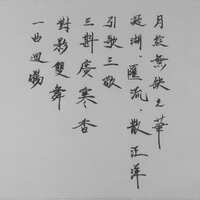 月盈無缺之華
凝湖·匯流·散汪洋
引歌三敬
三斟廣寒香
對影雙舞
一曲迴腸